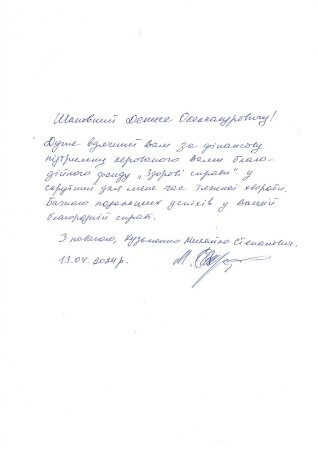 Шановний Денисе Олександровичу!
Дуже вдячний вам за фінансову
підтримку керованого вами благо-
дійного фонду „Здорові справи" у
скрутний для мене час тяжкої хвороби.
Бажаю подальших успіхів у вашій
благородній справі.
З повагою, Кузьменко Михайло Степанович.
13.04.2024 р.